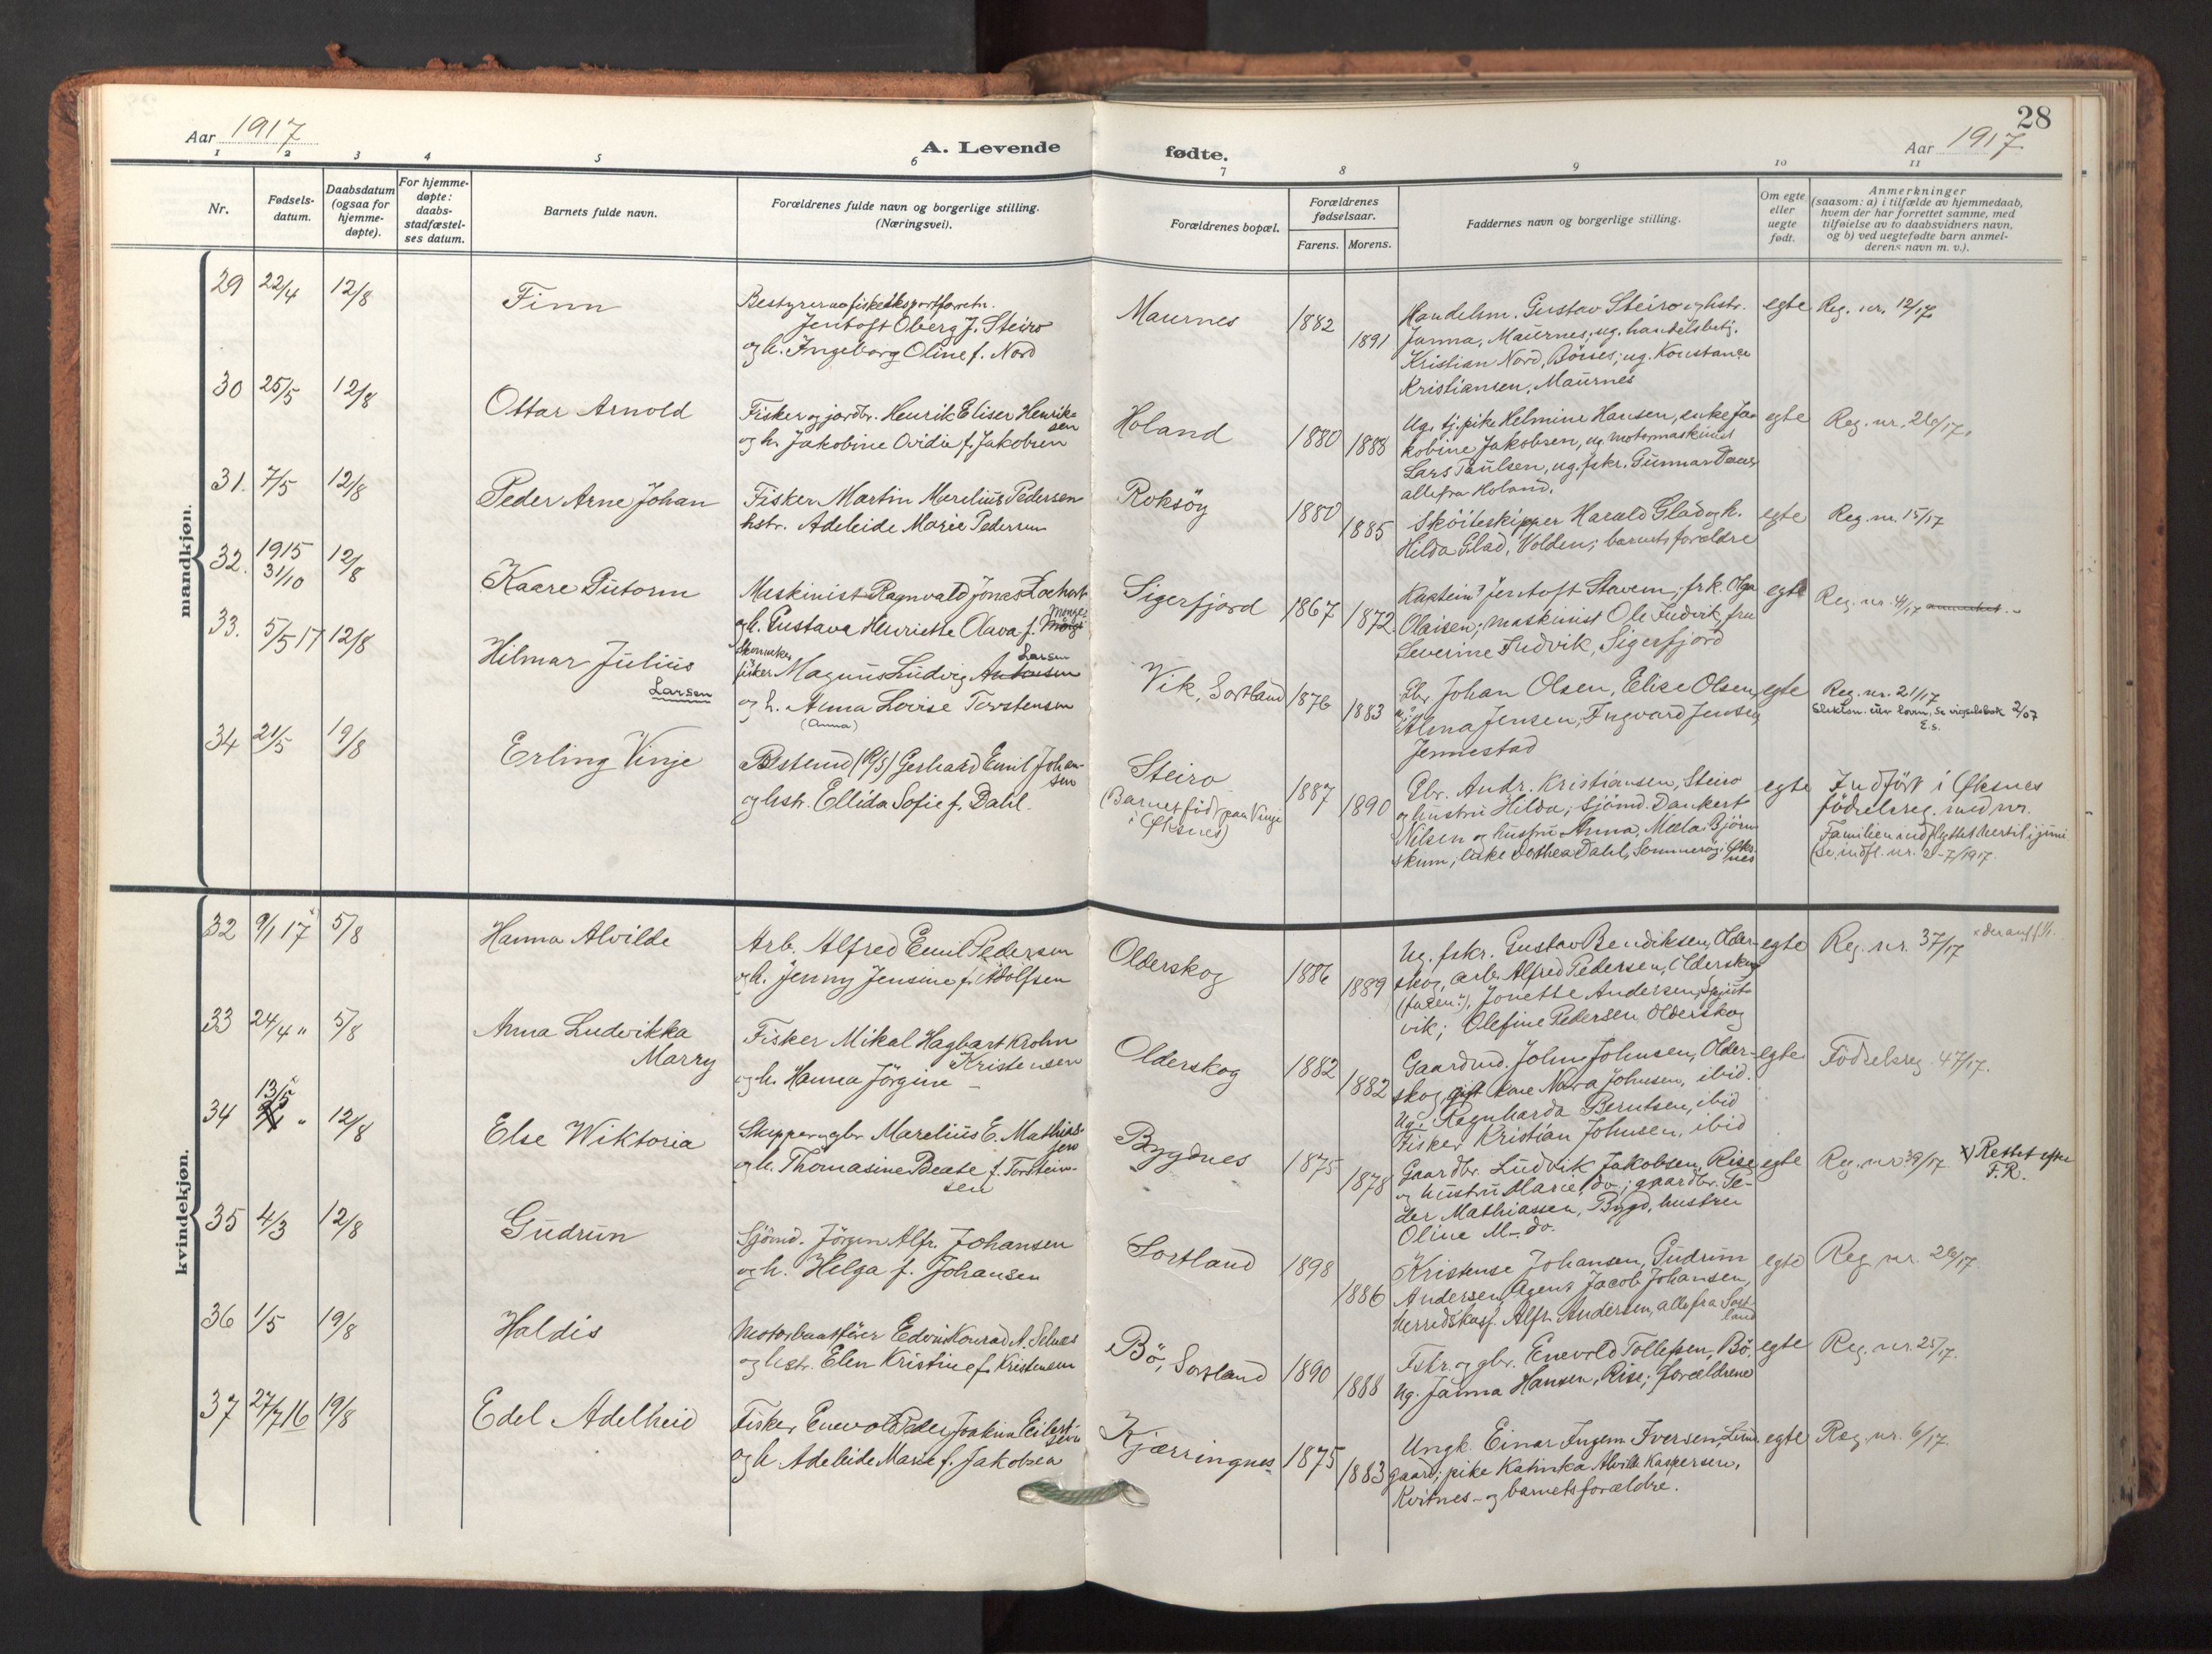 Aar 1917
A. Levende fødte.
Aar 1917
28
1 2 3 4 5 6 7 8 9 10 11
Nr.
Fødsels-
datum.
Daabsdatum
(ogsaa for
hjemme-
døpte).
For hjemme-
døpte:
daabs-
stadfæstel-
ses datum.
Barnets fulde navn.
Forældrenes fulde navn og borgerlige stilling.
(Næringsvei).
Forældrenes bopæl.
Forældrenes
fødselsaar.
Farens. Morens.
Faddernes navn og borgerlige stilling.
Om egte
eller
uegte
født.
Anmerkninger
(saasom: a) i tilfælde av hjemmedaab,
hvem der har forrettet samme, med
tilføielse av to daabsvidners navn,
og b) ved uegtefødte barn anmel-
derens navn m. v.).
mandkjøn.
29 22/4 12/8
Finn
Bestyrer
Jentoft Oberg J. Steiro
og h. Ingeborg Oline f. Nord
Maurnes
1882 1891
Handelsm. Gustav Steiro og hstr.
Janna, Maurnes; ug. handelsbetj.
Kristian Nord, Börses; ug. Konstance
Kristiansen, Maurnes
egte
Reg. nr. 12/17
30 25/5 12/8
Ottar Arnold
Fisker og jordbr. Henrik Eliser Henrik-
sen
og h. Jakobine Ovidia f. Jakobsen
Holand
1880 1888
Ug. tj. pike Helmine Hansen, enke Ja-
kobine Jakobsen, ug. motormaskinist
Lars Paulsen, ug. fskr. Gunnar
alle fra Holand.
egte
Reg. nr. 26/17.
31. 7/5 12/8
Peder Arne Johan
Fisker Martin Marelius Pedersen
hstr. Adeleide Marie Pedersen
Roksöy
1880 1885
Sköiteskipper Harald Glad og h.
Hilda Glad, Volden; barnets forældre
egte
Reg. nr. 15/17
32. 1915
31/10 12/8
Kaare Gutorm
Maskinist Ragnvald Jonas Lochert
og h. Gustava Henriette Olava f.
Sigerfjord
1867 1872
Kaptein Jentoft Stavem; frk. Olga
Olaisen; maskinist Ole Indvik, fru
Severine Indvik, Sigerfjord
egte
Reg. nr. 41/17
33. 5/5 17 12/8
Hilmar Julius
Larsen
Skomaker
fisker Magnus Ludvig Antonsen
Larsen
og h. Anna Lovise Torstensen
(Anna)
Vik, Sortland
1876 1883
Gbr. Johan Olsen, Elise Olsen,
Alma Jensen, Ingvard Jensen,
Jennestad
egte
Reg. nr. 21/17
2/57
E.S.
34 21/5 19/8
Erling Vinje
Gerhard Emil Johan-
sen
og hstr. Ellida Sofie f. Dahl.
Steiro
(Barnet född paa Vinje
i Øksnes)
1887 1890
Gbr. Andr. Kristiansen, Steiro
og hustru Hilda; Sjömd. Dankert
Nilsen og hustru Anna, Meela Björn-
skum; enke Dorthea Dahl, Sommeröy i Øks-
nes
egte
Indfört i Øksnes
födselsreg. med nr.
Familien indflyttet hertil i juni
(Se indfl. nr. 2-7/1917.
kvindekjøn.
32 9/1 17 5/8
Hanna Alvilde
Arb. Alfred Emil Pedersen
og h. Jenny Jensine f. Adolfsen
Olderskog
1886 1889
Ug. fskr. Gustav Bendiksen, Older-
skog, arb. Alfred Pedersen, Olderskog
(faren), Jonette Andersen,
vik; Olefine Pedersen Olderskog
egte
Reg. nr. 37/17
33 24/4 " 5/8
Anna Ludvikka
Marry
Fisker Mikal Hagbart Krohn
Kristensen
og h. Hanna Jörgine
Olderskog
1882 1882
Gaardmd. John Johnsen, Older-
skog, gift kone Nora Johnsen, ibid.
Ug. Regnharda Berntsen, ibid
Fisker Kristian Johnsen, ibid
egte
Födselsreg. 47/17.
34 13/5 " 12/8
Else Wiktoria
Skipper og gbr. Marelius E. Mathias-
sen
og h. Thomasine Beate f. Torstein-
sen
Bygdnes
1875 1878
Gaardbr. Ludvik Jakobsen, Rise
og hustru Marie, do; gaardbr. Pe-
der Mathiassen, Bygd, hustru
Oline M. do.
egte
Reg. nr. 39/17 x) Rettet efter
F.R.
35 4/3 12/8
Gudrun
Sjömd. Jörgen Alfr. Johansen
og h. Helga f. Johansen
Sortland
1898 1886
Kristense Johansen, Gudrun
Andersen, Agent Jacob Johansen,
herredskasf. Alfr. Andersen, alle fra Sort-
land
egte
Reg. nr. 26/17.
36 1/5 19/8
Haldis
Motorbaatförer Edvin Konrad A. Selnes
og hstr. Elen Kristine f. Kristensen
Bö, Sortland
1890 1888
Fskr. og gbr. Enevold Tollefsen, Bö,
ug. Janna Hansen, Rise; forældrene
egte
Reg. nr. 25/17.
37 27/7 16 19/8
Edel Adelheid
Fisker Enevold Peder Joakim Eilert-
sen
og h. Adeleide Marie f. Jakobsen
Kjærringnes
1875 1883
Ungk. Einar Ingem. Iversen, Lund-
gaard; pike Katinka Alvild Kaspersen,
Kvitnes - og barnets forældre.
egte
Reg. nr. 6/17.